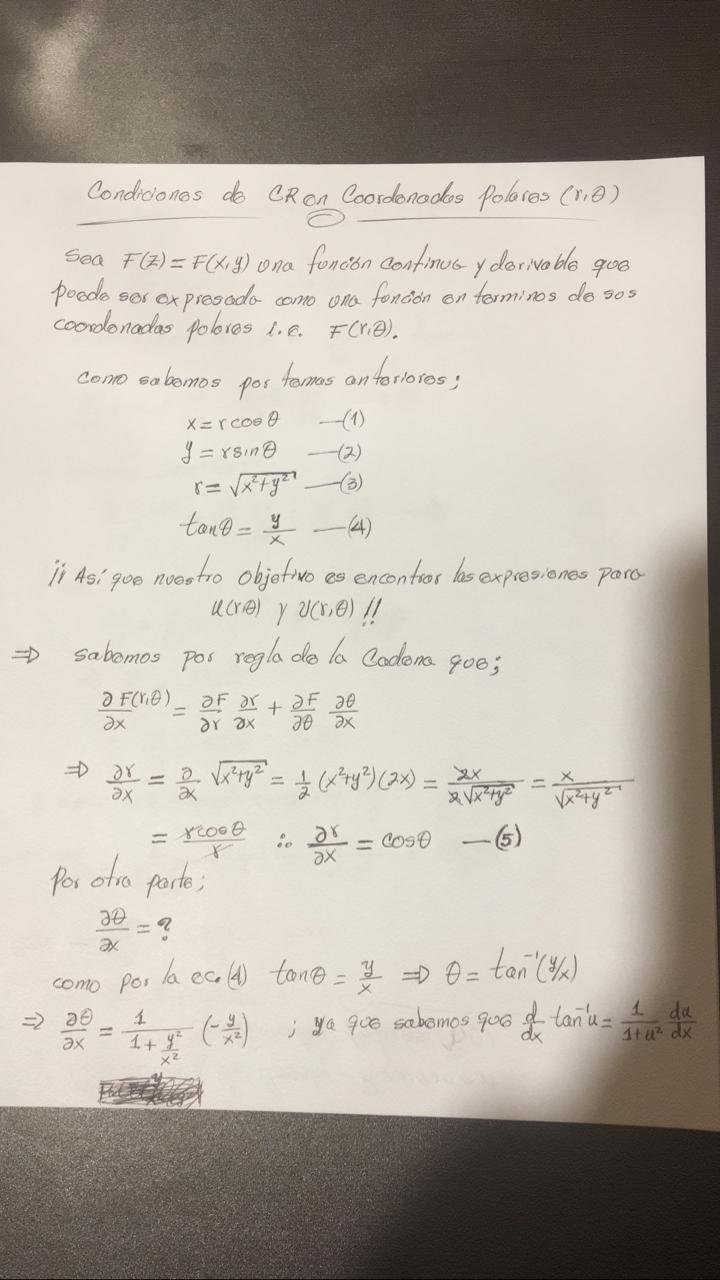 Condiciones de CR en Coordenadas Polares (r,θ)
Sea F(z) = F(x,y) una función continua y derivable que
puede ser expresada como una función en terminos de sus
coordenadas polares i.e. F(r,θ).
como sabemos por temas anteriores;
x = r cos θ —(1)
y = r sin θ —(2)
r = √(x²+y²) —(3)
tan θ = y/x —(4)
¡¡ Así que nuestro objetivo es encontrar las expresiones para
u(r,θ) y v(r,θ) !!
⇒ sabemos por regla de la Cadena que;
∂F(r,θ)/∂x = ∂F/∂r ∂r/∂x + ∂F/∂θ ∂θ/∂x
⇒ ∂r/∂x = ∂/∂x √(x²+y²) = 1/2 (x²+y²)(2x) = 2x/2√(x²+y²) = x/√(x²+y²)
= r cos θ/r ∴ ∂r/∂x = cos θ —(5)
Por otra parte;
∂θ/∂x = ?
como por la ec. (4) tan θ = y/x ⇒ θ = tan⁻¹(y/x)
⇒ ∂θ/∂x = 1/(1 + y²/x²) (-y/x²) ; ya que sabemos que d/dx tan⁻¹u = 1/(1+u²) du/dx